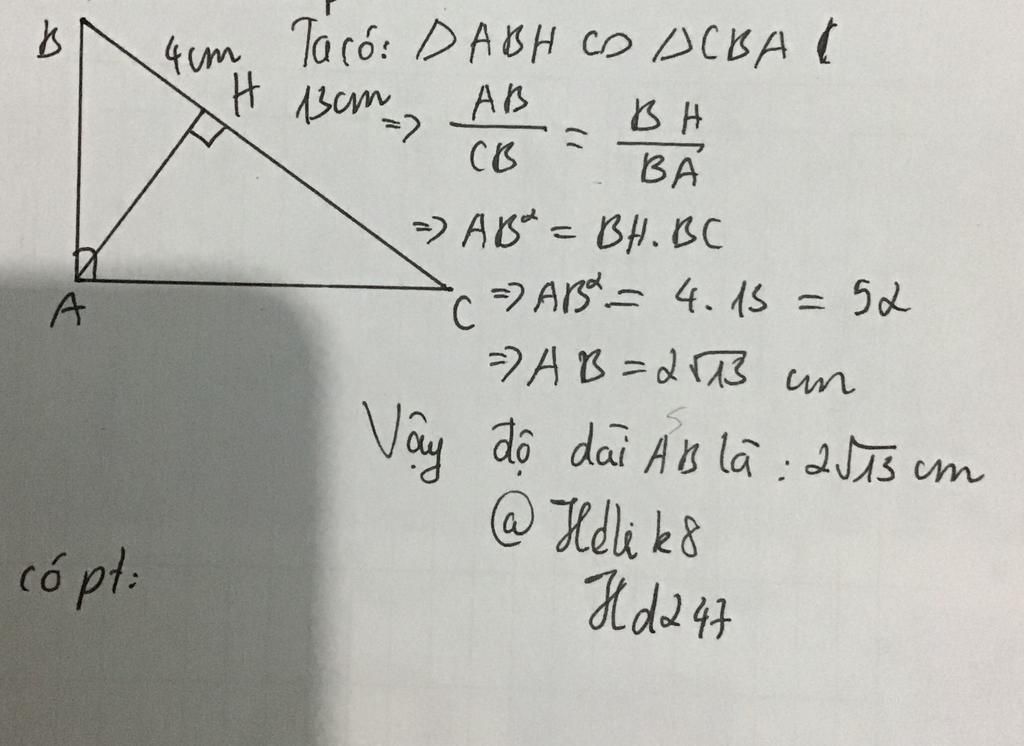 B
4cm
H
13cm
A
C
Ta có: △ABH ∽ △CBA (
=> AB/CB = BH/BA
=> AB² = BH.BC
=> AB² = 4.13 = 52
=> AB = 2√13 cm
Vậy độ dài AB là : 2√13 cm
@Hdlik8
Hd247
có pt: